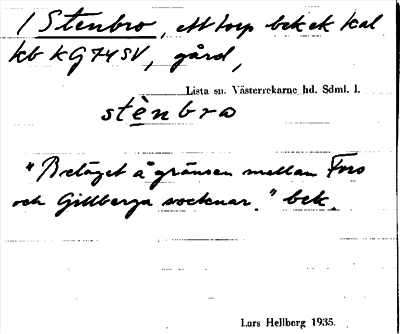 1 Stenbro, ett torp bek ek kal
kb kG 74 SV, gård,
Lista sn. Västerrekarne hd. Sdml. l.
stènbro
"Beläget å gränsen mellan Fors
och Gillberga socknar." bek.
Lars Hellberg 1935.